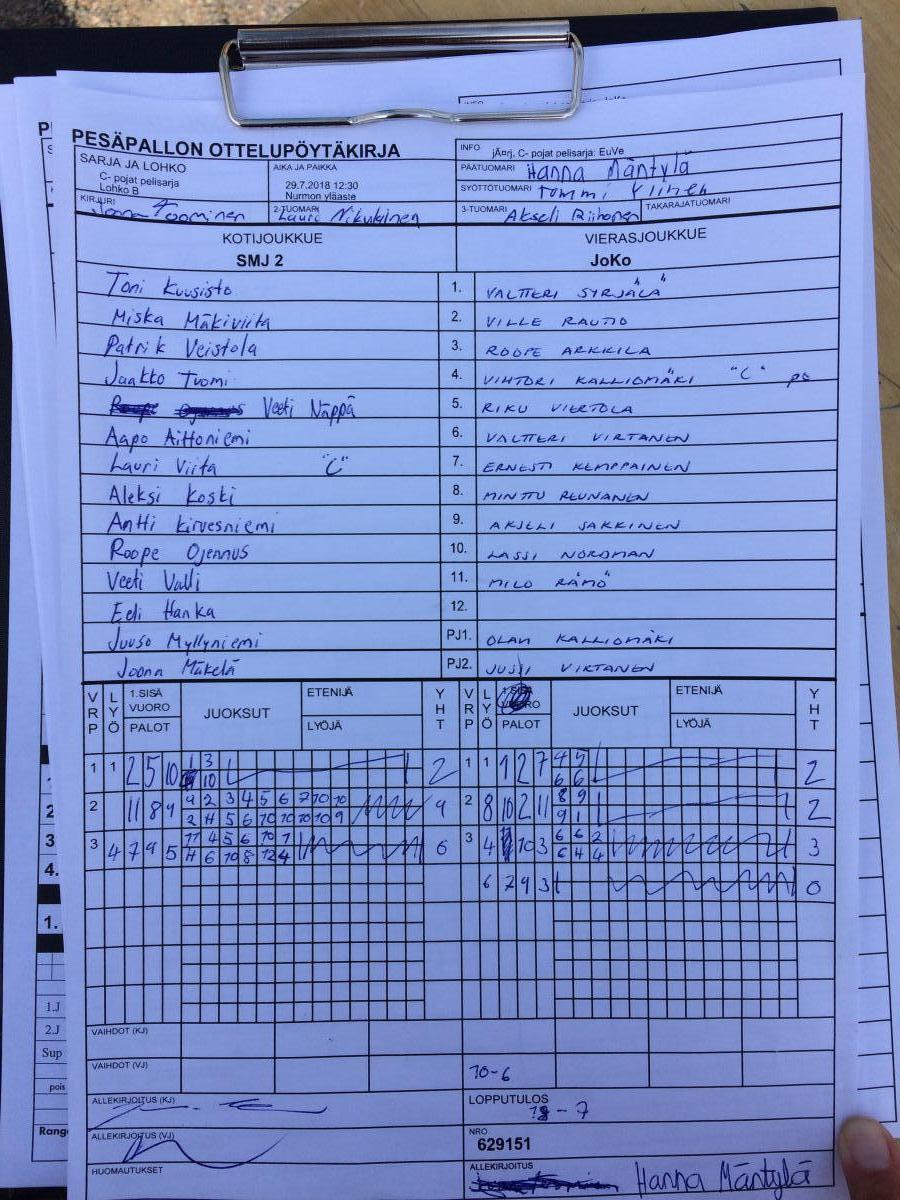 PESÄPALLON OTTELUPÖYTÄKIRJA
SARJA JA LOHKO
C- pojat pelisarja
Lohko B
AIKA JA PAIKKA
29.7.2018 12:30
Nurmon yläaste
INFO jÄ¤rj, C- pojat pelisarja: EuVe
PÄÄTUOMARI Hanna Mäntylä
SYÖTTÖTUOMARI Tommi
KIRJURI Joona Tuominen
2-TUOMARI Lauri Nikukinen
3-TUOMARI Akseli Riihonen
TAKARAJATUOMARI
KOTIJOUKKUE
SMJ 2
VIERASJOUKKUE
JoKo
Toni Kuusisto 1. VALTTERI SYRJÄLÄ
Miska Mäkiviita 2. VILLE RAUTIO
Patrik Veistola 3. ROOPE ARKKILA
Jaakko Tuomi 4. VIHTORI KALLIOMÄKI "C" po
Veeti Näppä 5. RIKU VIERTOLA
Aapo Aittoniemi 6. VALTTERI VIRTANEN
Lauri Viita "C" 7. ERNESTI KEMPPAINEN
Aleksi Koski 8. MINTTU REUNANEN
Antti Kirvesniemi 9. AKSELI SAKKINEN
Roope Ojennus 10. LASSI NORDMAN
Veeti Valli 11. MILO RÄMÖ
Eeli Hanka 12.
Juuso Myllyniemi PJ1. OLAVI KALLIOMÄKI
Joona Mäkelä PJ2. JUSSI VIRTANEN
VRP LYÖ 1.SISÄ VUORO PALOT JUOKSUT ETENIJÄ LYÖJÄ YHT
VRP LYÖ PALOT JUOKSUT ETENIJÄ LYÖJÄ YHT
1 1 2 5 10 1 3 2
10
1 1 1 2 7 4 5 2
6 6
2 11 8 9 9 2 3 4 5 6 7 10 10 9
2 11 5 6 10 10 10 10 9
2 8 10 2 11 8 9 2
9 1
3 4 7 9 5 11 4 5 6 10 7 6
11 6 10 8 12 4
3 4 10 3 6 6 2 3
6 4 4
6 7 9 3 0
VAIHDOT (KJ)
VAIHDOT (VJ)
10-6
ALLEKIRJOITUS (KJ)
LOPPUTULOS
18 - 7
ALLEKIRJOITUS (VJ)
NRO
629151
HUOMAUTUKSET
ALLEKIRJOITUS
Hanna Mäntylä